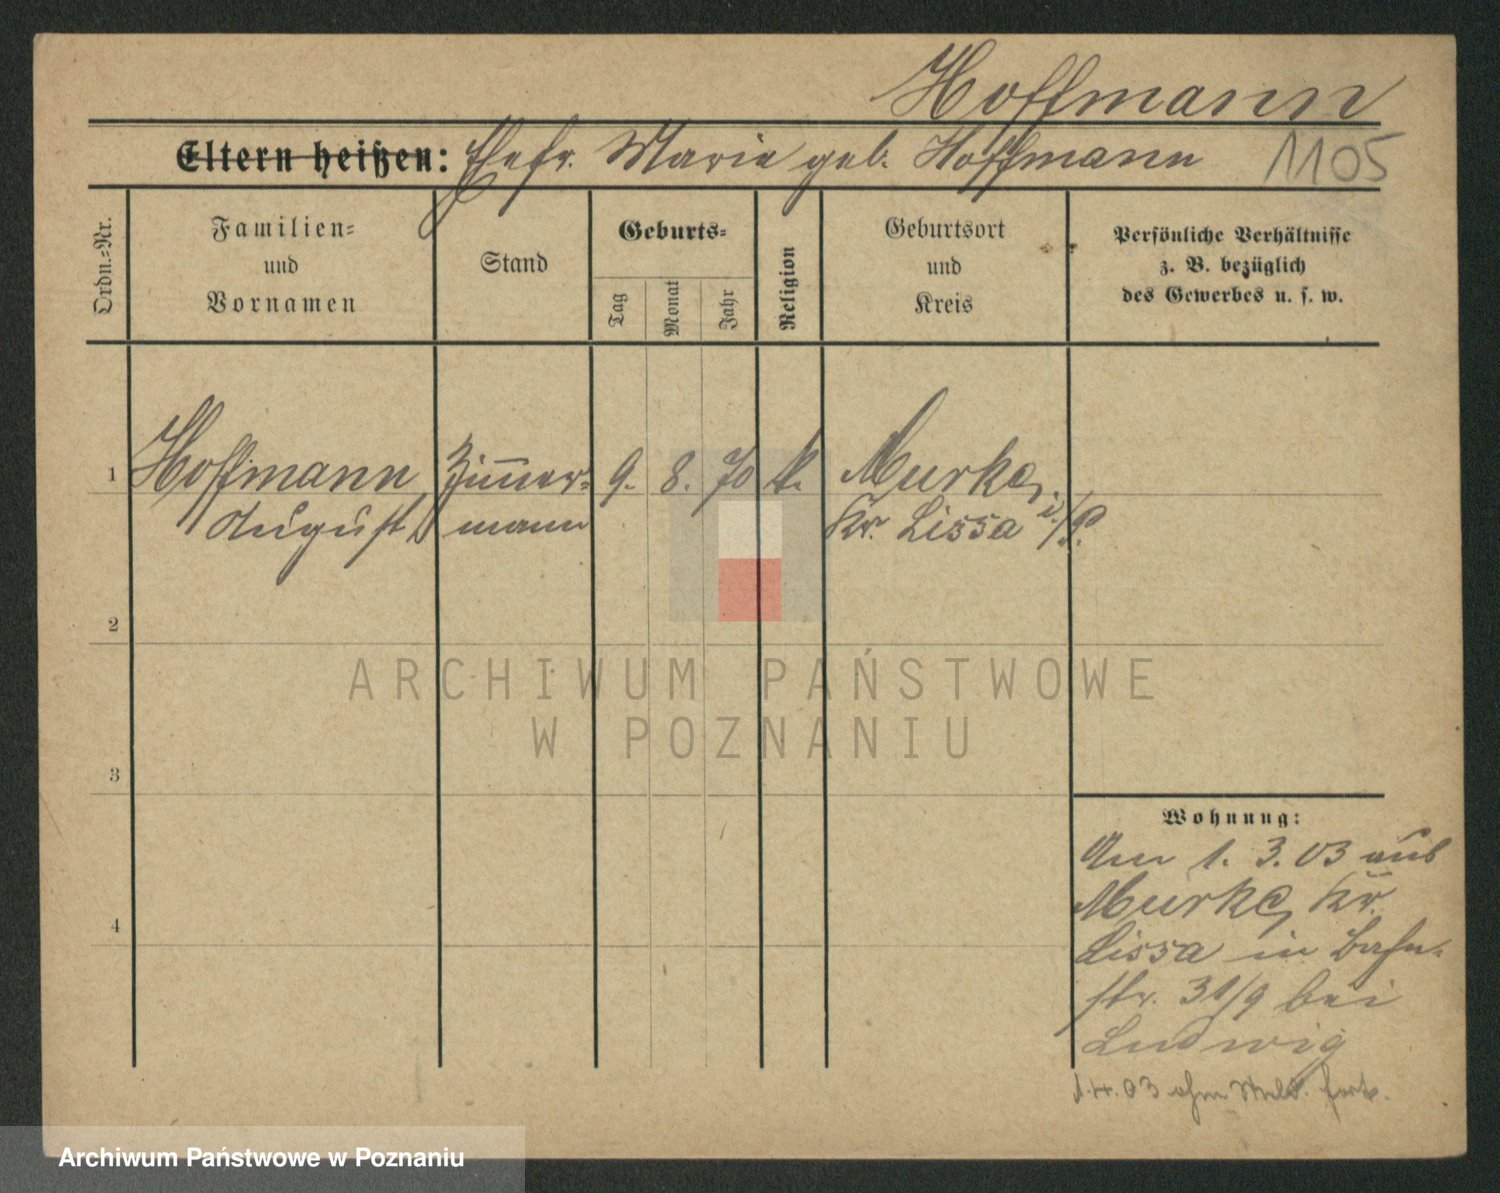 Hoffmann
Eltern heißen: Ehefr. Marie geb. Hoffmann
1105
Ordn.=Nr.
Familien=
und
Vornamen
Stand
Geburts=
Tag
Monat
Jahr
Religion
Geburtsort
und
Kreis
Persönliche Verhältnisse
z. B. bezüglich
des Gewerbes u. s. w.
1 Hoffmann, Zimmer= 9. 8. 70 k. Murke,
August mann Kr. Lissa i/P.
2
3
4
ARCHIWUM PAŃSTWOWE
W POZNANIU
Wohnung:
Am 1. 3. 03 aus
Murke, Kr.
Lissa in Bahn-
str. 31/9 bei
Ludwig
1.4.03 ohne Meld. fort.
Archiwum Państwowe w Poznaniu